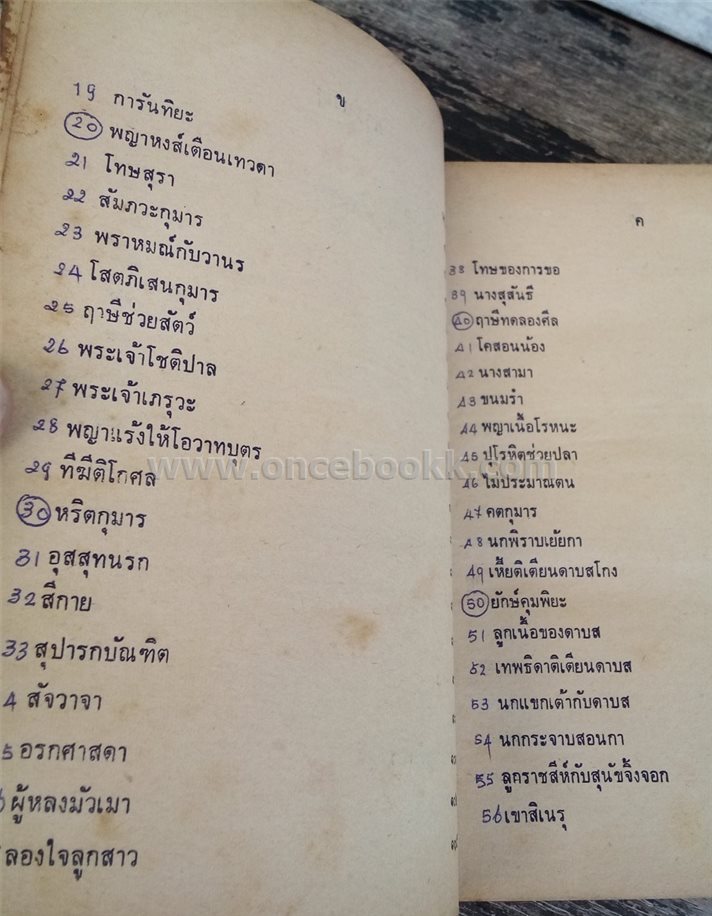 ข
19 การันทิยะ
20 พญาหงส์เตือนเทวดา
21 โทษสุรา
22 สัมภวะกุมาร
23 พราหมณ์กับวานร
24 โสตภิเสนกุมาร
25 ฤๅษีช่วยสัตว์
26 พระเจ้าโชติปาล
27 พระเจ้าเภรุวะ
28 พญาแร้งให้โอวาทบุตร
29 ทีฆีติโกศล
30 หริตกุมาร
31 อุสสุทนรก
32 สีกาย
33 สุปารกบัณฑิต
4 สัจวาจา
5 อรกศาสดา
ผู้หลงมัวเมา
ลองใจลูกสาว
www.oncebookk.com
ค
38 โทษของการขอ
39 นางสุสันธี
40 ฤาษีทดลองศีล
41 โคสอนน้อง
42 นางสามา
43 ขนมรำ
44 พญาเนื้อโรหนะ
45 ปุโรหิตช่วยปลา
46 ไม่ประมาณตน
47 คตกุมาร
48 นกพิราบเย้ยกา
49 เหี้ยติเตียนดาบสโกง
50 ยักษ์คุมพิยะ
51 ลูกเนื้อของดาบส
52 เทพธิดาติเตียนดาบส
53 นกแขกเต้ากับดาบส
54 นกกระจาบสอนกา
55 ลูกราชสีห์กับสุนัขจิ้งจอก
56 เขาสิเนรุ